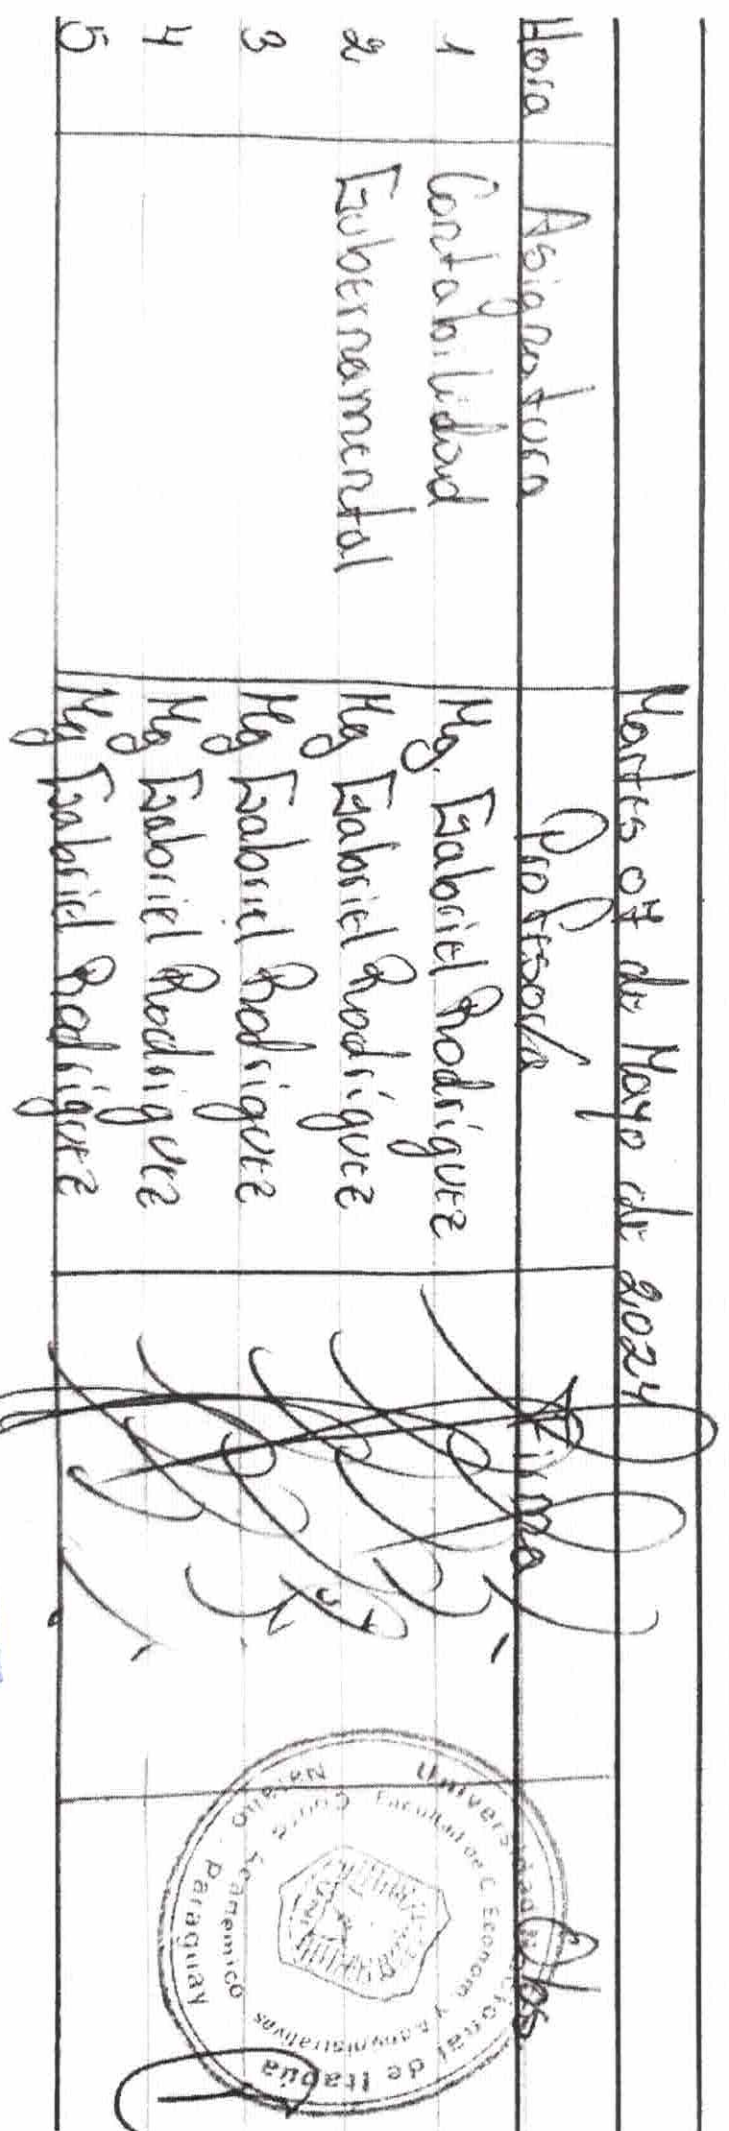 Martes 07 de Mayo de 2.024
Hora Asignatura Profesor/a Firma Obs
1 Contabilidad Mg. Gabriel Rodríguez
2 Gubernamental Mg Gabriel Rodríguez
3 Mg Gabriel Rodriguez
4 Mg Gabriel Rodriguez
5 Mg Gabriel Rodríguez
Universidad Nacional de Itapúa
Facultad de C. Econom y Administrativas
Coord. Academico
Natalio - Paraguay
UNI